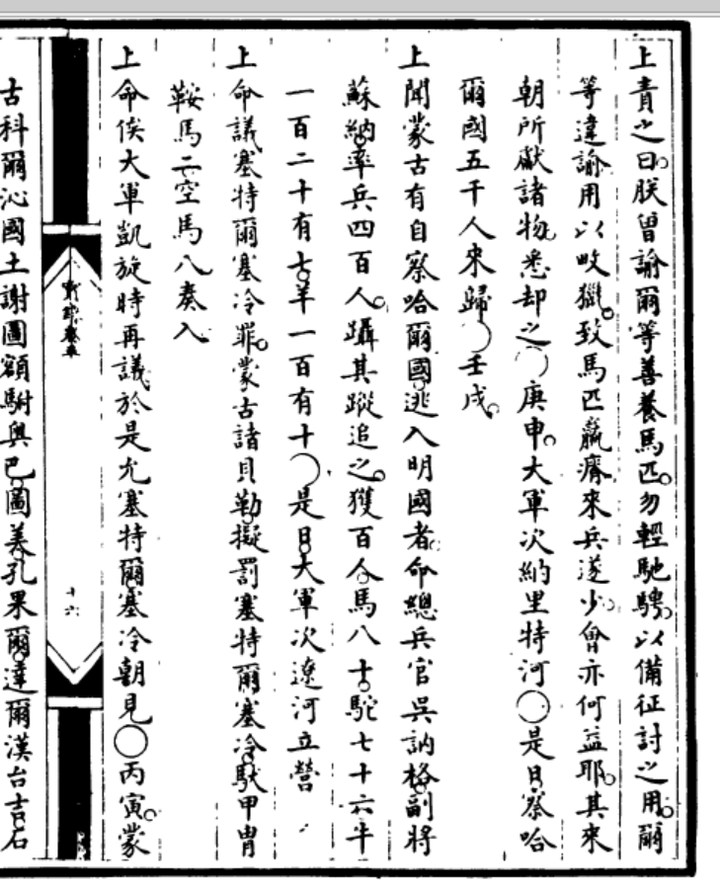 上責之曰朕曾諭爾等善養馬匹勿輕馳騁以備征討之用爾
等違諭用以畋獵致馬匹羸瘠來兵遂少會亦何益耶其來
朝所獻諸物悉却之○庚申大軍次納里特河○是日察哈
爾國五千人來歸○壬戌
上聞蒙古有自察哈爾國逃入明國者命總兵官吳訥格副將
蘇納率兵四百人躡其蹤追之獲百人馬八十駝七十六牛
一百二十有七羊一百有十○是日大軍次遼河立營
上命議塞特爾塞冷罪蒙古諸貝勒擬罰塞特爾塞冷馱甲冑
鞍馬二空馬八奏入
上命俟大軍凱旋時再議於是允塞特爾塞冷朝見○丙寅蒙
十六
古科爾沁國土謝圖額駙與巴圖美孔果爾達爾漢台吉石